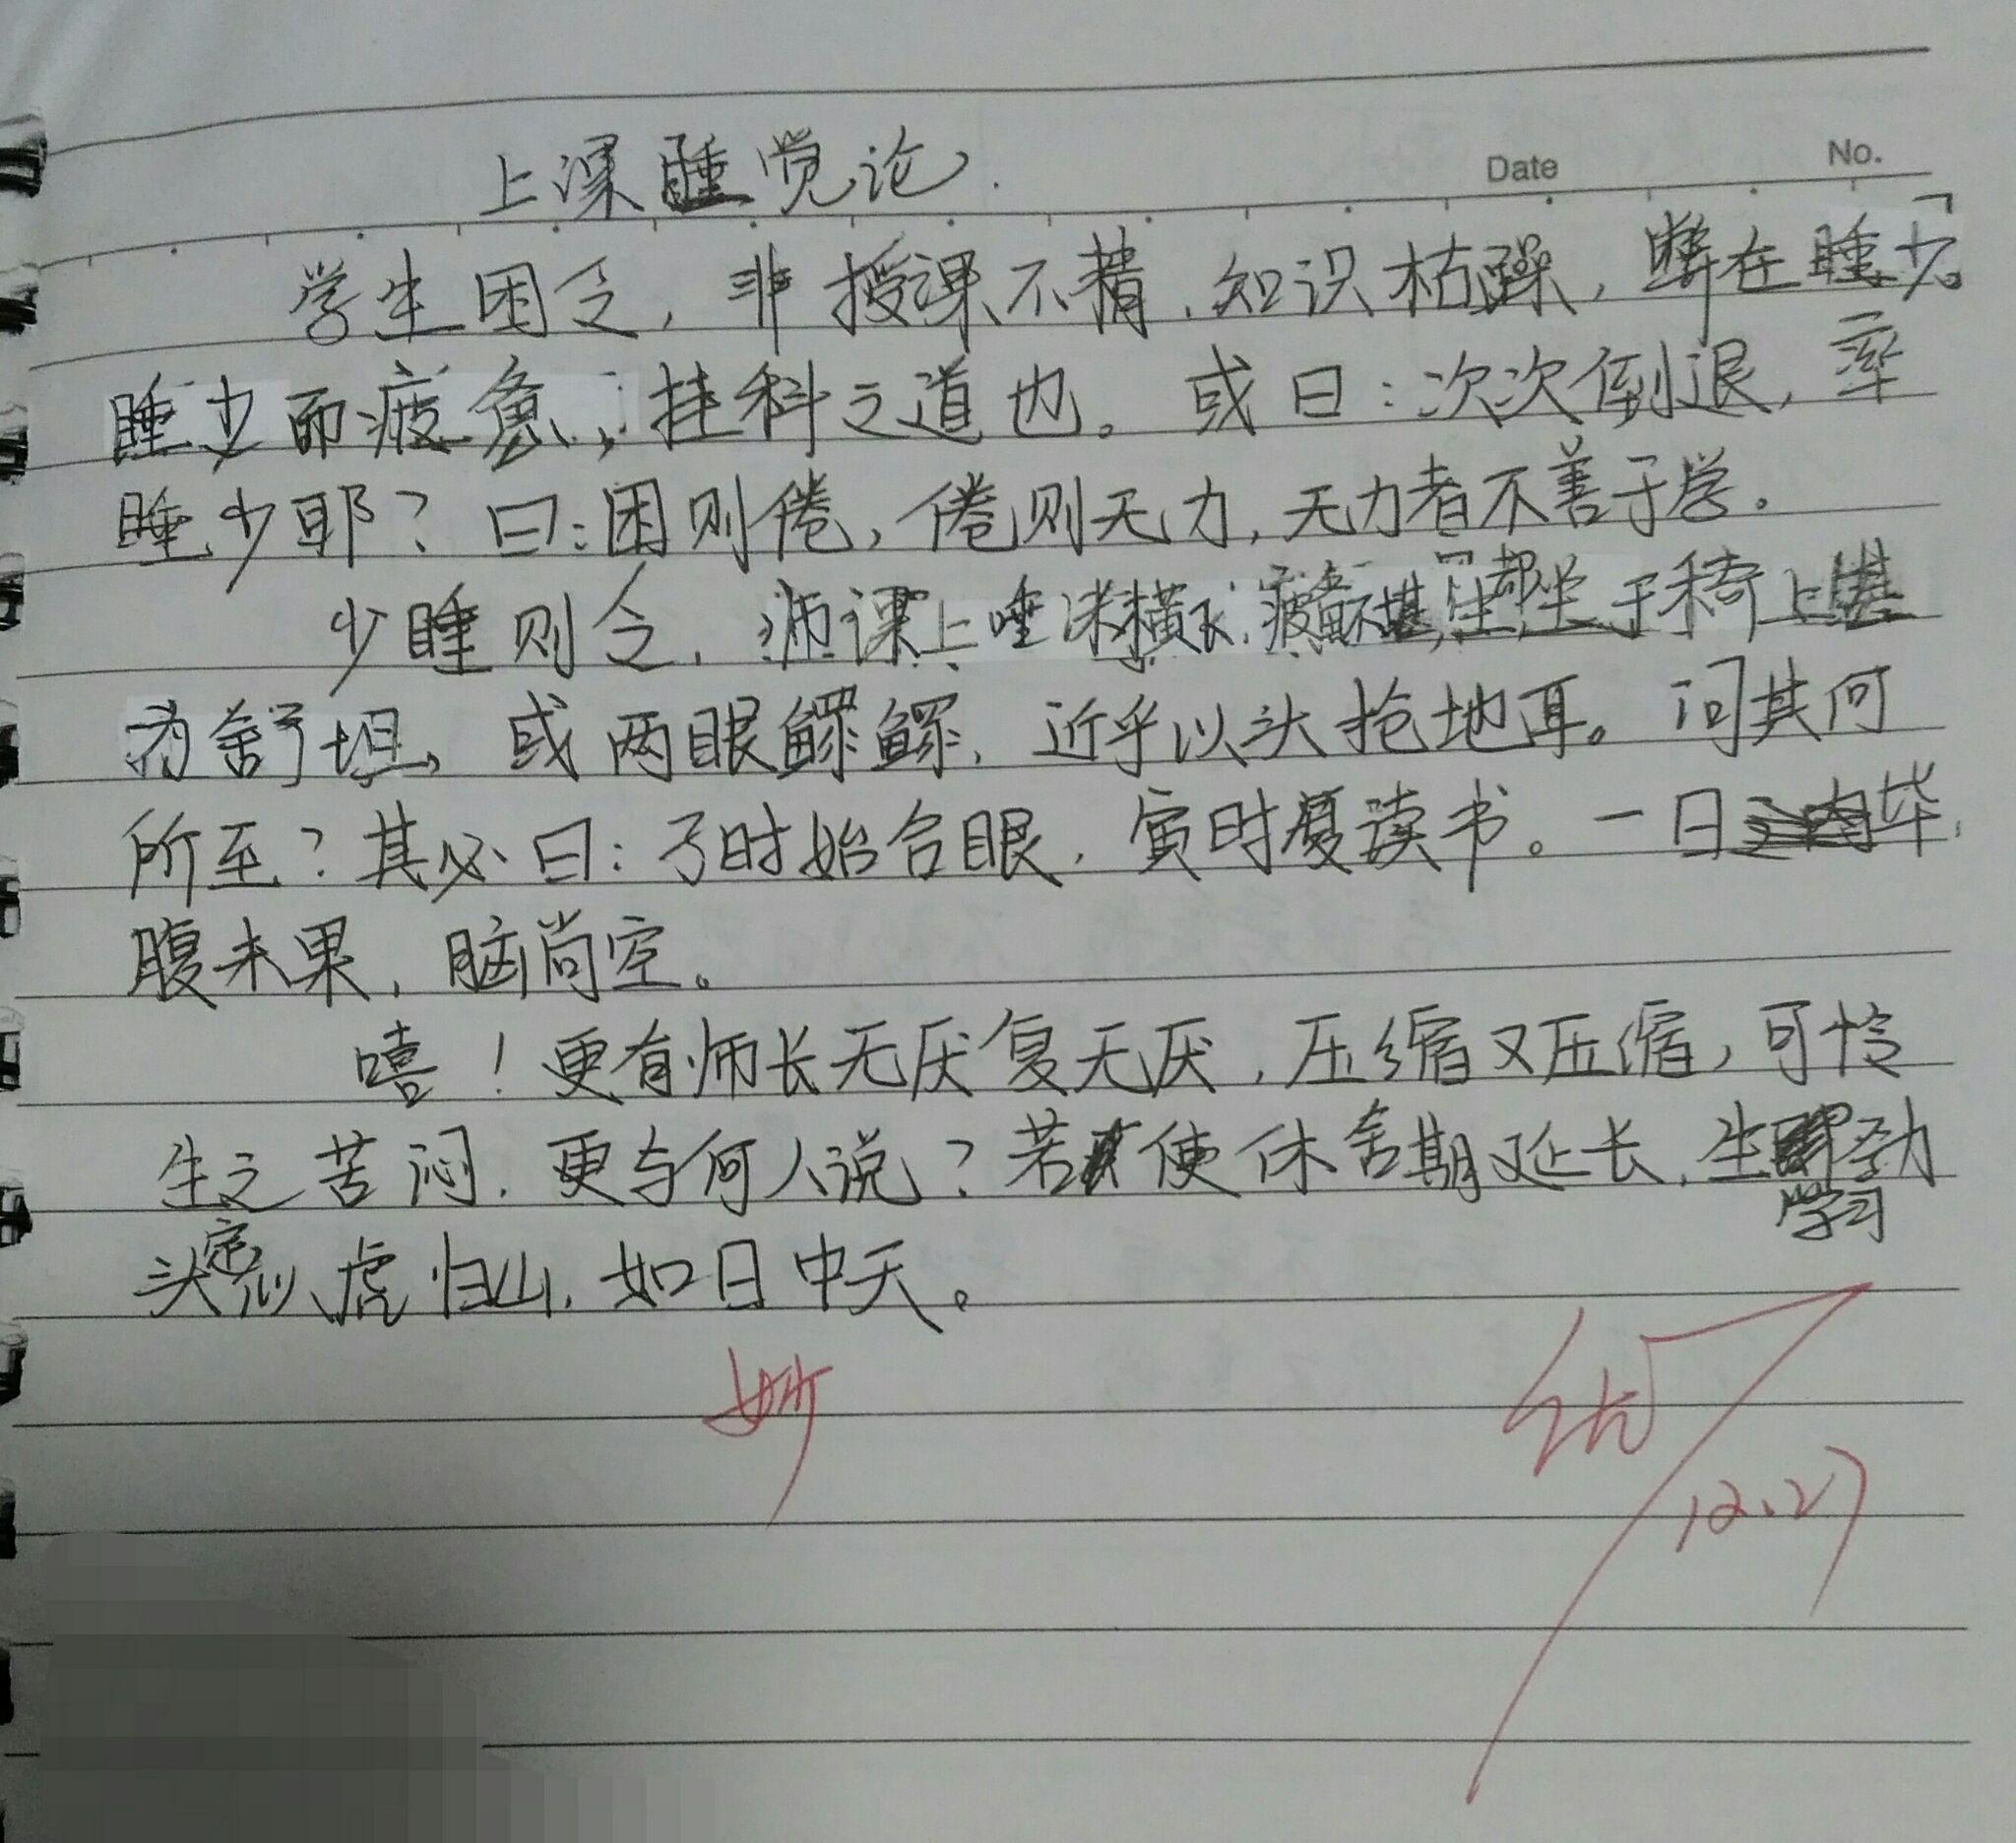 上课睡觉论.
Date No.
学生困乏，非授课不精，知识枯燥，弊在睡少。
睡少而疲惫，挂科之道也。或曰：次次倒退，率
睡少耶？曰：困则倦，倦则无力，无力者不善于学。
少睡则令，师课上唾沫横飞，疲惫不堪，生都坐于椅上甚
为舒坦，或两眼鳏鳏，近乎以头抢地耳。问其何
所至？其必曰：子时始合眼，寅时复读书。一日毕，
腹未果，脑尚空。
嘻！更有师长无厌复无厌，压缩又压缩，可怜
生之苦闷，更与何人说？若使休舍期延长，生学习劲
头定似虎归山，如日中天。
妙
12.27